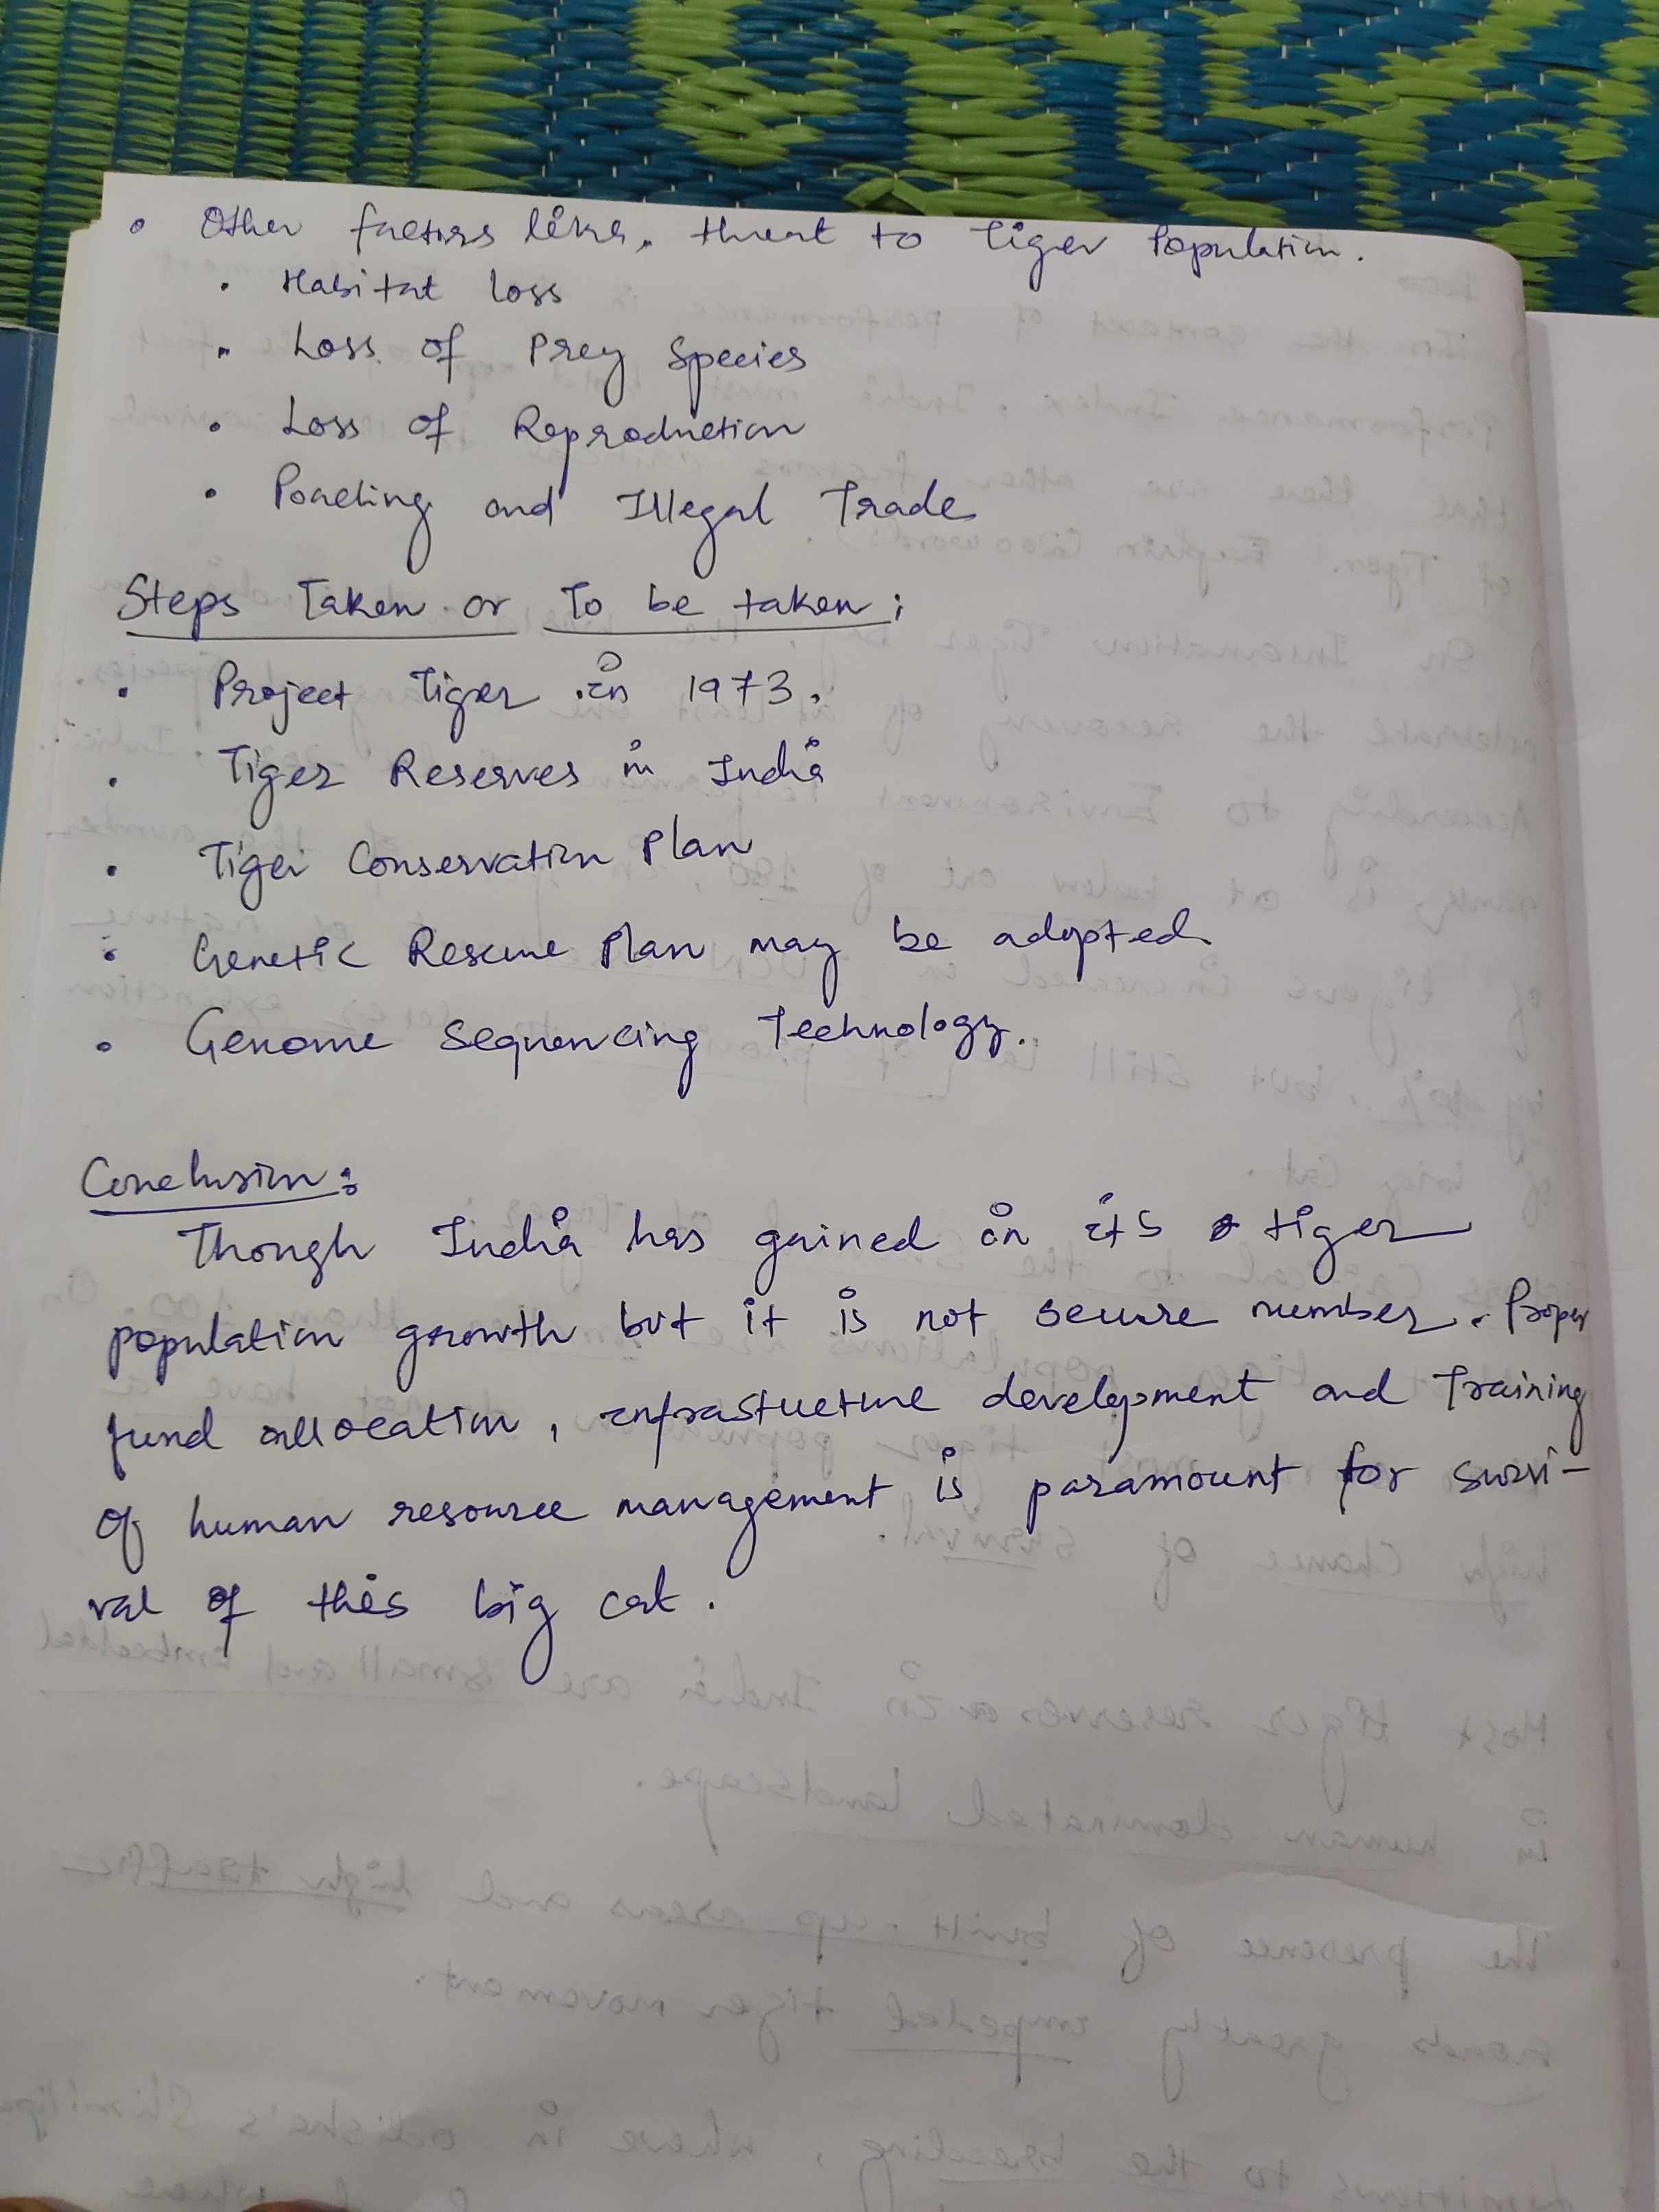 • Other factors like, threat to Tiger Population.
• Habitat loss
• Loss of Prey Species
• Loss of Reproduction
• Poaching and Illegal Trade
Steps Taken or To be taken:
• Project Tiger in 1973.
• Tiger Reserves in India
• Tiger Conservation Plan
• Genetic Rescue Plan may be adopted.
• Genome Sequencing Technology.
Conclusion:
Though India has gained in its tiger
population growth but it is not secure number. Proper
fund allocation, infrastucture development and Training
of human resource management is paramount for survi-
val of this big cat.